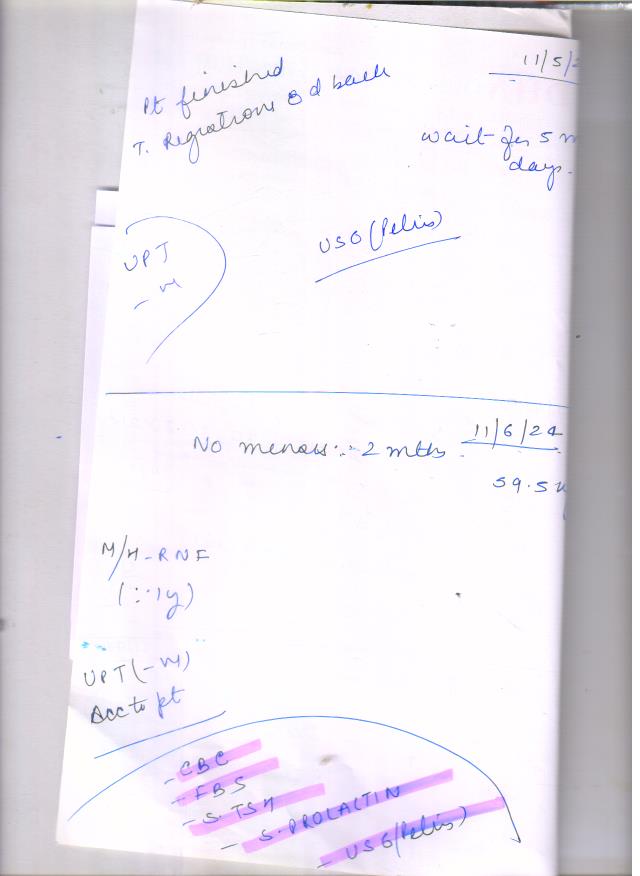 11/5/2
Pt finished
T. Regnatrone 8 d back
wait for 5 m
days.
USG (Pelvis)
UPT
-ve
11/6/24
No menses ∵ 2 mths
59.5
M/H - RNF
(∵ 1y)
UPT (-ve)
Acc to pt
- CBC
- FBS
- S. TSH
- S. PROLACTIN
- USG (Pelvis)